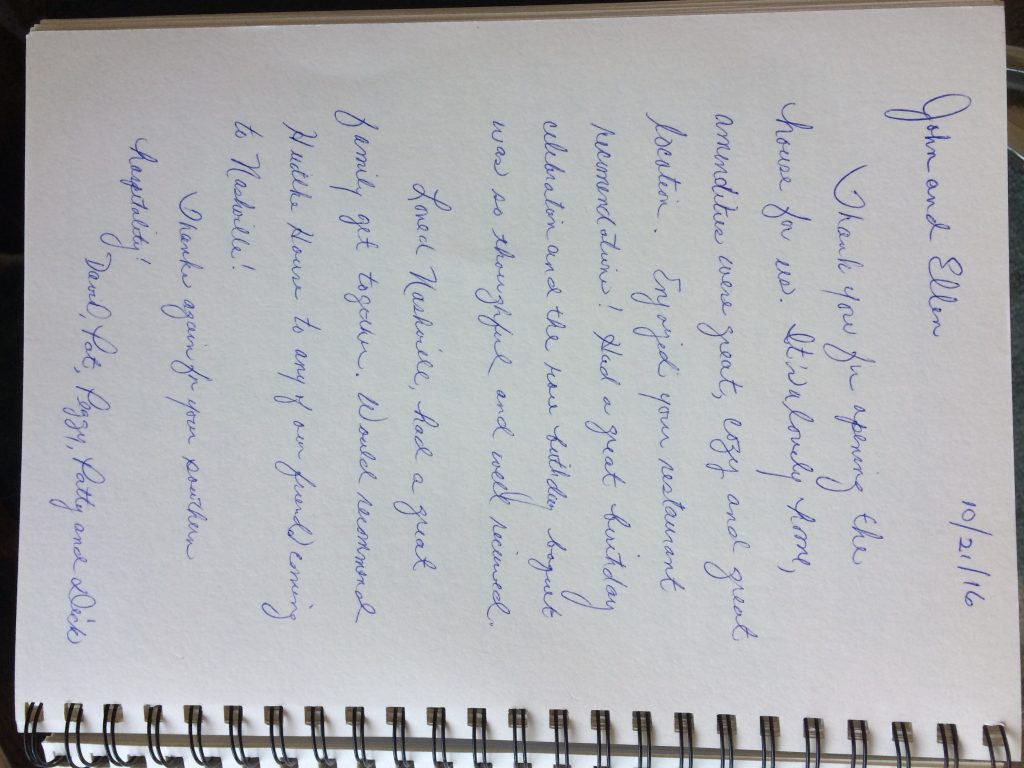 10/21/16
John and Ellen
Thank you for opening the
house for us. It's a lovely home,
amenities were great, cozy and great
location. Enjoyed your restaurant
recomendations! Had a great birthday
celebration and the birthday boquet
was so thoughtful and well received.
Loved Nashville, had a great
family get together. Would recommend
House to any of our friends coming
to Nashville!
Thanks again for your southern
hospitality!
David, Pat, Peggy, Patty and Dick